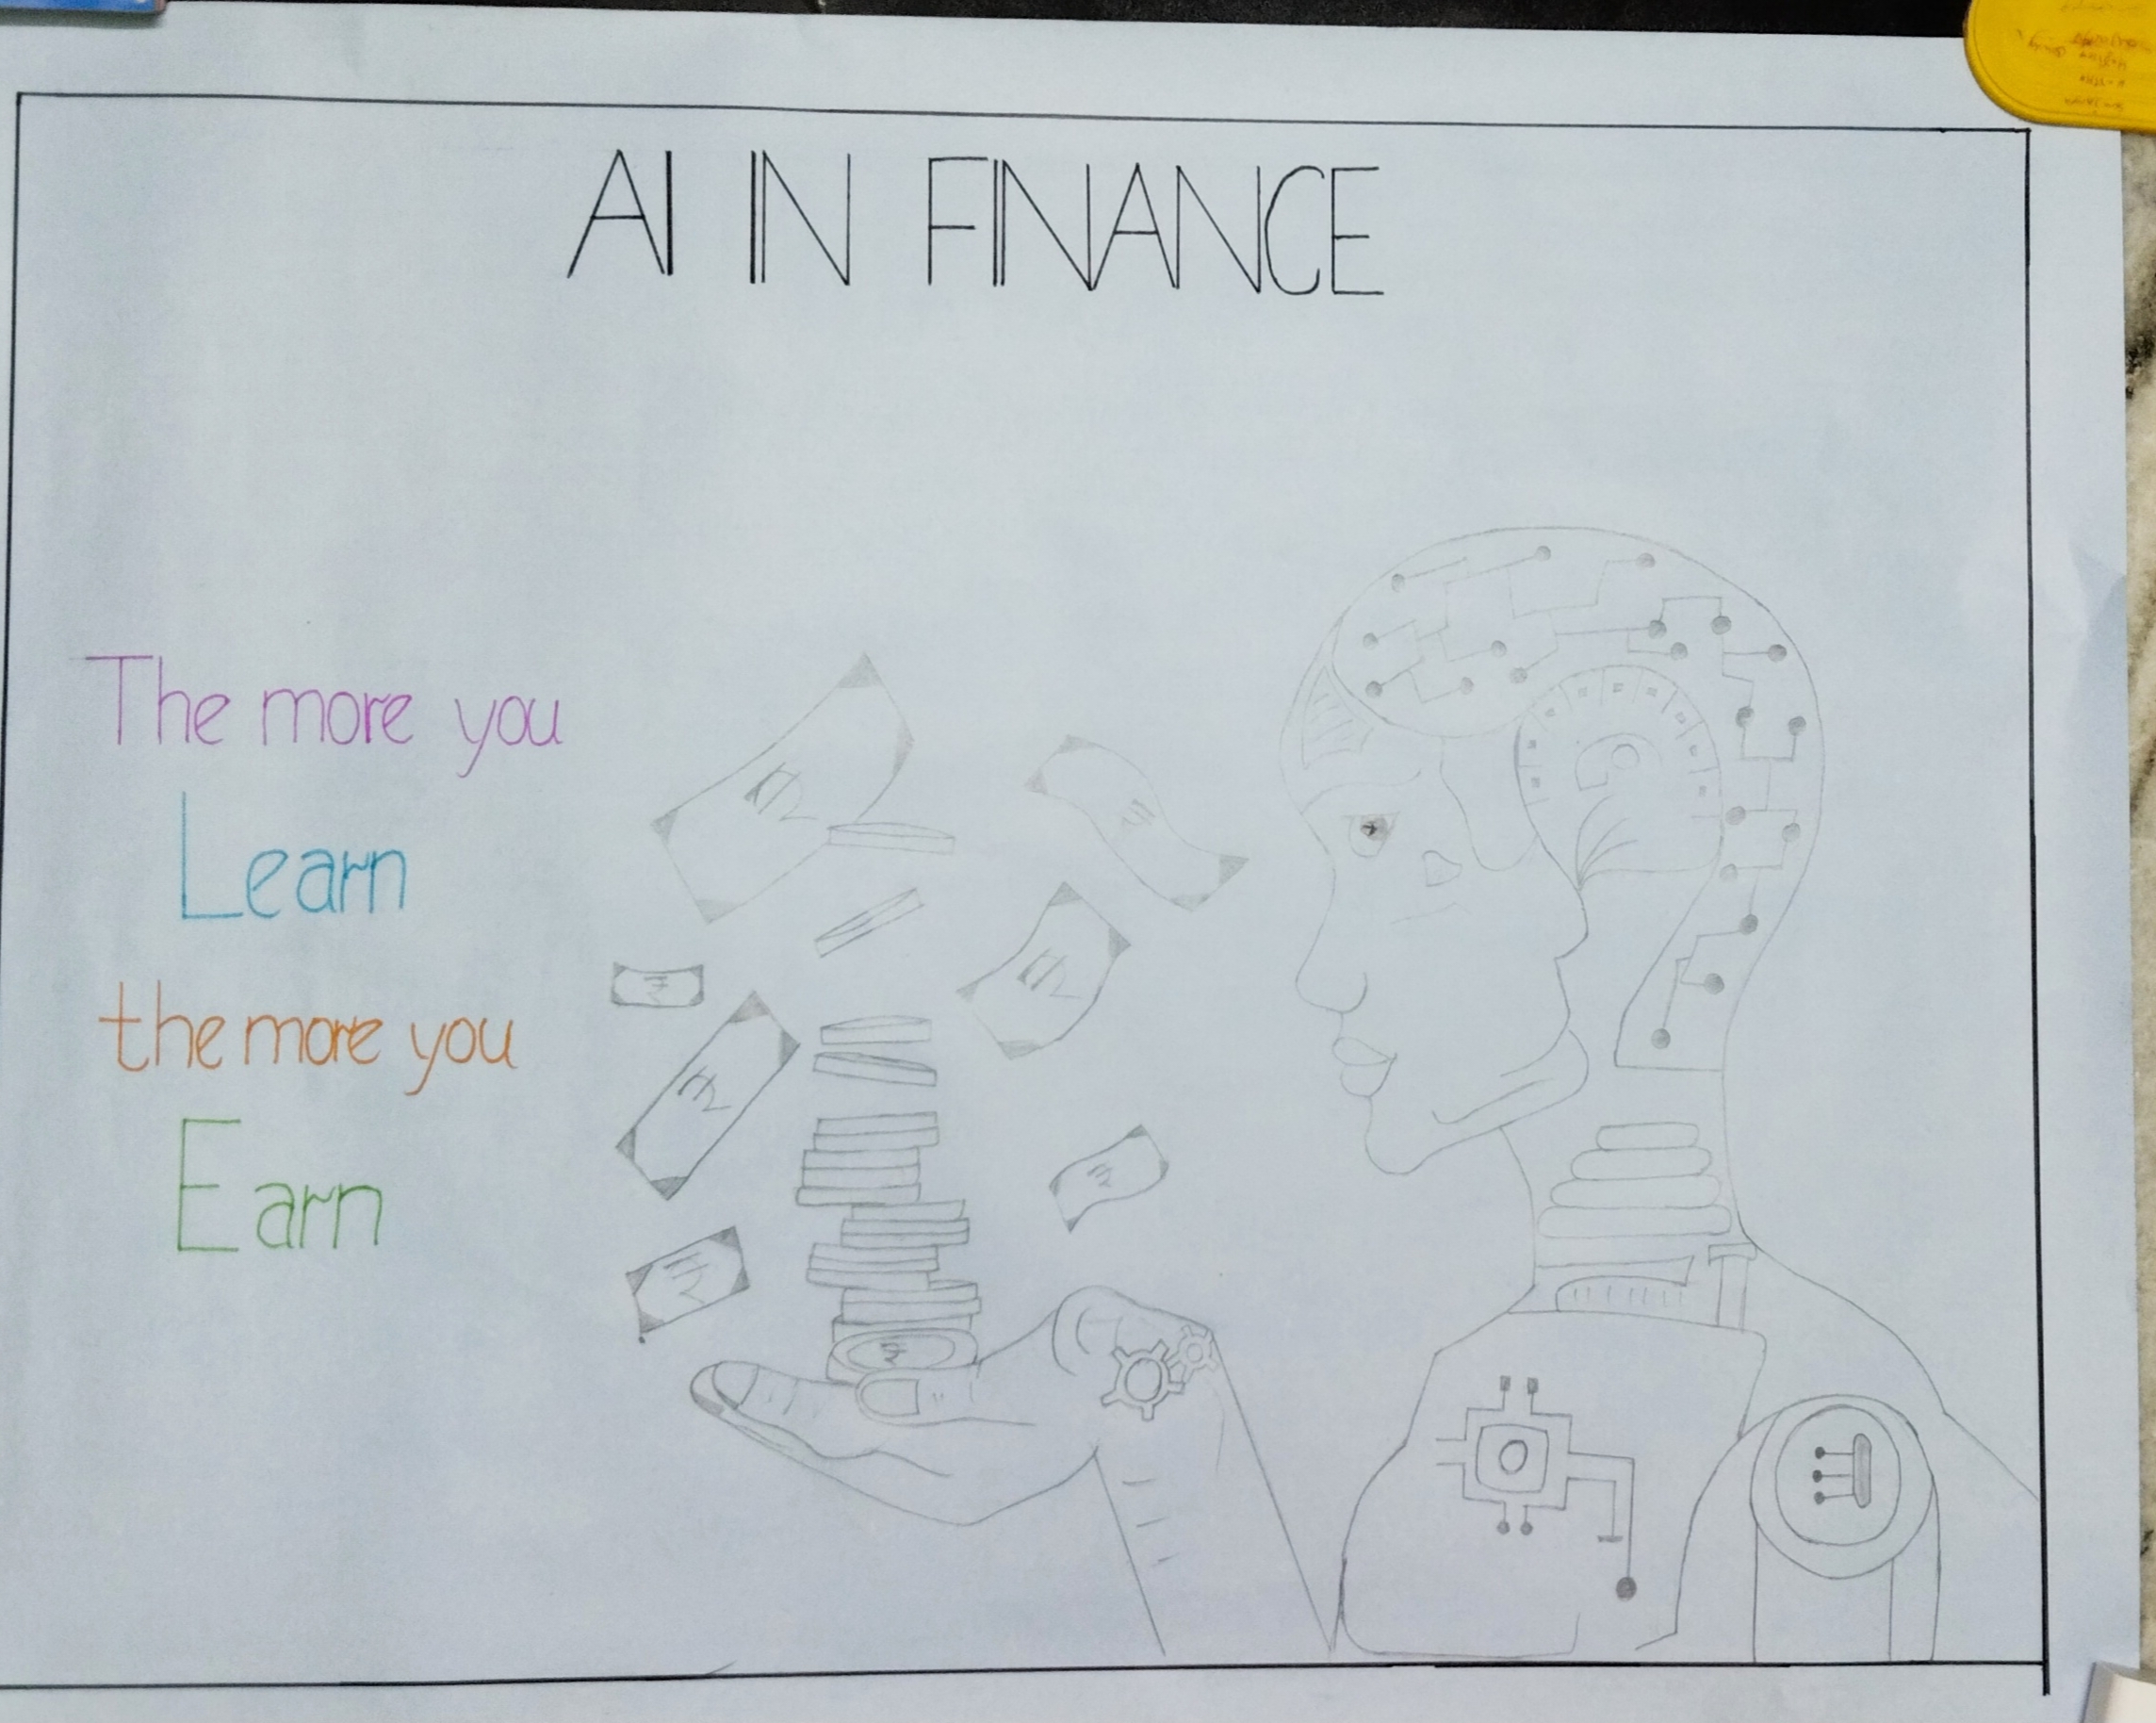 AI IN FINANCE
The more you
Learn
the more you
Earn
₹
₹
₹
₹
₹
₹
₹
₹